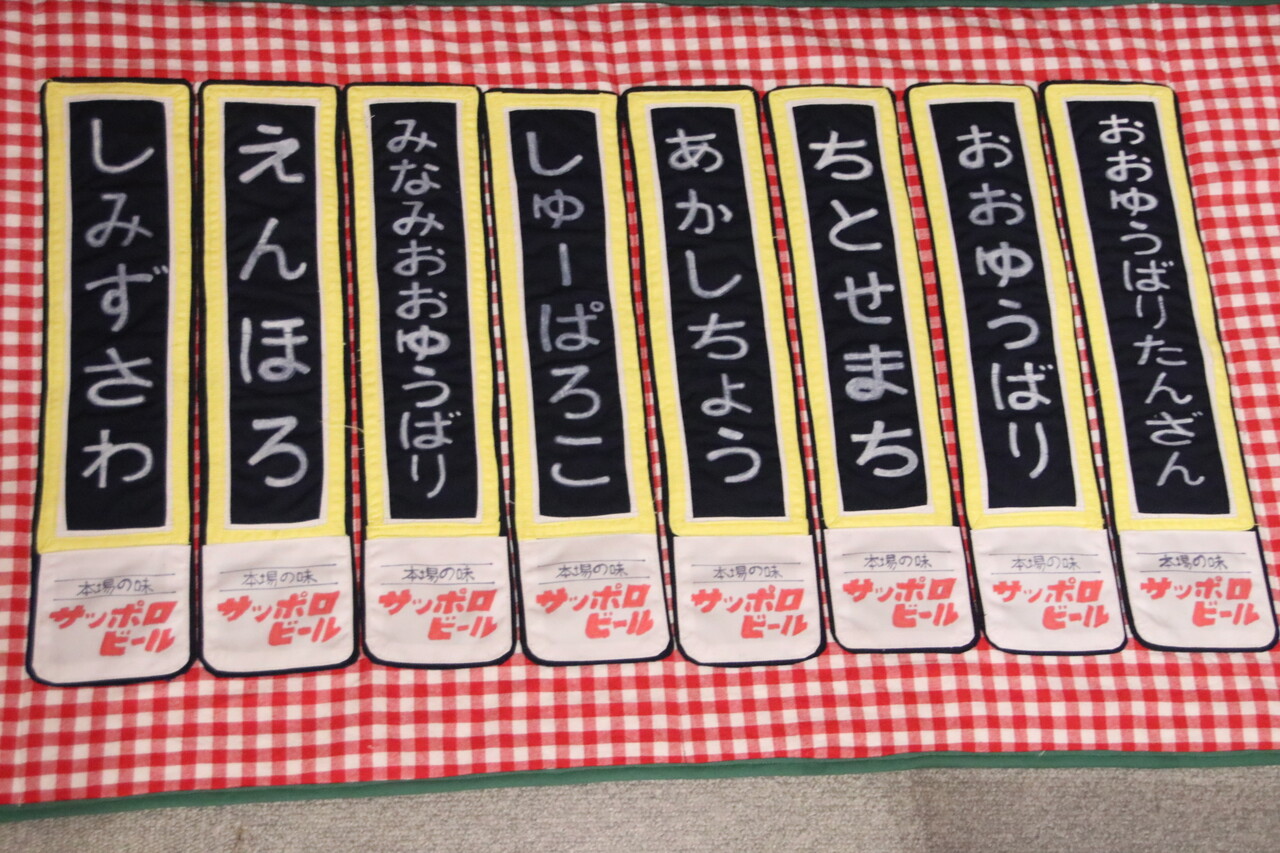 しみずさわ
本場の味
サッポロ
ビール
えんほろ
本場の味
サッポロ
ビール
みなみおおゆうばり
本場の味
サッポロ
ビール
しゅーぱろこ
本場の味
サッポロ
ビール
あかしちょう
本場の味
サッポロ
ビール
ちとせまち
本場の味
サッポロ
ビール
おおゆうばり
本場の味
サッポロ
ビール
おおゆうばりたんざん
本場の味
サッポロ
ビール